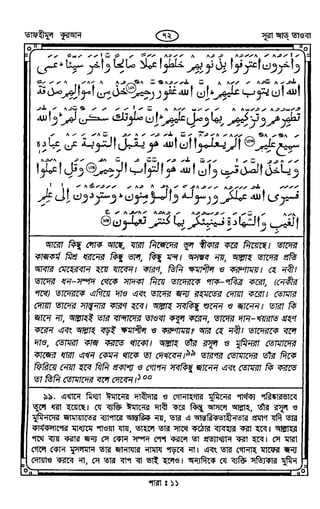 তাফহীমুল কুরআন
৭২
সূরা আত্ তাওবা
وَأَخَرُونَ اعْتَرَفُوا بِذُنُوبِهِمْ خَلَطُوا عَمَلًا صَالِحًا وَّأَخَرَ سَيِّئًا ۖ عَسَى
اللهُ أَنْ يَّتُوبَ عَلَيْهِمْ ۖ إِنَّ اللهَ غَفُورٌ رَّحِيمٌ ۝ خُذْ مِنْ أَمْوَالِهِمْ صَدَقَةً
تُطَهِّرُهُمْ وَتُزَكِّيهِمْ بِهَا وَصَلِّ عَلَيْهِمْ ۖ إِنَّ صَلَوٰتَكَ سَكَنٌ لَّهُمْ ۖ وَاللهُ
سَمِيعٌ عَلِيمٌ ۝ أَلَمْ يَعْلَمُوا أَنَّ اللهَ هُوَ يَقْبَلُ التَّوْبَةَ عَنْ عِبَادِهِ
وَيَأْخُذُ الصَّدَقٰتِ وَأَنَّ اللهَ هُوَ التَّوَّابُ الرَّحِيمُ ۝ وَقُلِ اعْمَلُوا
فَسَيَرَى اللهُ عَمَلَكُمْ وَرَسُولُهُ وَالْمُؤْمِنُونَ ۖ وَسَتُرَدُّونَ إِلَىٰ عٰلِمِ
الْغَيْبِ وَالشَّهَادَةِ فَيُنَبِّئُكُمْ بِمَا كُنْتُمْ تَعْمَلُونَ ۝
আরো কিছু লোক আছে, যারা নিজেদের ভুল স্বীকার করে নিয়েছে। তাদের
কাজকর্ম মিশ্র ধরনের কিছু ভাল, কিছু মন্দ। অসম্ভব নয়, আল্লাহ তাদের প্রতি
আবার মেহেরবান হয়ে যাবেন। কারণ, তিনি ক্ষমাশীল ও করুণাময়। হে নবী!
তাদের ধন-সম্পদ থেকে সাদকা নিয়ে তাদেরকে পাক-পবিত্র করো, (নেকীর
পথে) তাদেরকে এগিয়ে দাও এবং তাদের জন্য রহমতের দোয়া করো। তোমার
দোয়া তাদের সান্ত্বনার কারণ হবে। আল্লাহ সবকিছু শুনেন ও জানেন। তারা কি
জানে না, আল্লাহই তার বান্দাদের তাওবা কবুল করেন, তাদের দান-খয়রাত গ্রহণ
করেন এবং আল্লাহ বড়ই ক্ষমাশীল ও করুণাময়? আর হে নবী! তাদেরকে বলে
দাও, তোমরা কাজ করতে থাকো। আল্লাহ তাঁর রসূল ও মুমিনরা তোমাদের
কাজের ধারা এখন কেমন থাকে তা দেখবেন।৯৯ তারপর তোমাদের তাঁর দিকে
ফিরিয়ে নেয়া হবে যিনি প্রকাশ্য ও গোপন সবকিছু জানেন এবং তোমরা কি করতে
তা তিনি তোমাদের বলে দেবেন।১০০
৯৯. এখানে মিথ্যা ঈমানের দাবীদার ও গোনাহগার মুমিনের পার্থক্য পরিষ্কারভাবে
তুলে ধরা হয়েছে। যে ব্যক্তি ঈমানের দাবী করে কিন্তু আসলে আল্লাহ, তাঁর রসূল ও
মুমিনদের জামায়াতের ব্যাপারে আন্তরিক নয়, তার এ আন্তরিকতাহীনতার প্রমাণ যদি তার
কার্যকলাপের মাধ্যমে পাওয়া যায়, তাহলে তার সাথে কঠোর ব্যবহার করা হবে। আল্লাহর
পথে ব্যয় করার জন্য সে কোন সম্পদ পেশ করলে তা প্রত্যাখ্যান করা হবে। সে মারা
গেলে কোন মুসলমান তার জানাযার নামায পড়বে না। এবং তার গোনাহ মাফের জন্য
দোওয়াও করবে না, সে তার বাপ বা ভাই হলেও। অন্যদিকে যে ব্যক্তি সত্যিকার মুমিন
পারা : ১১